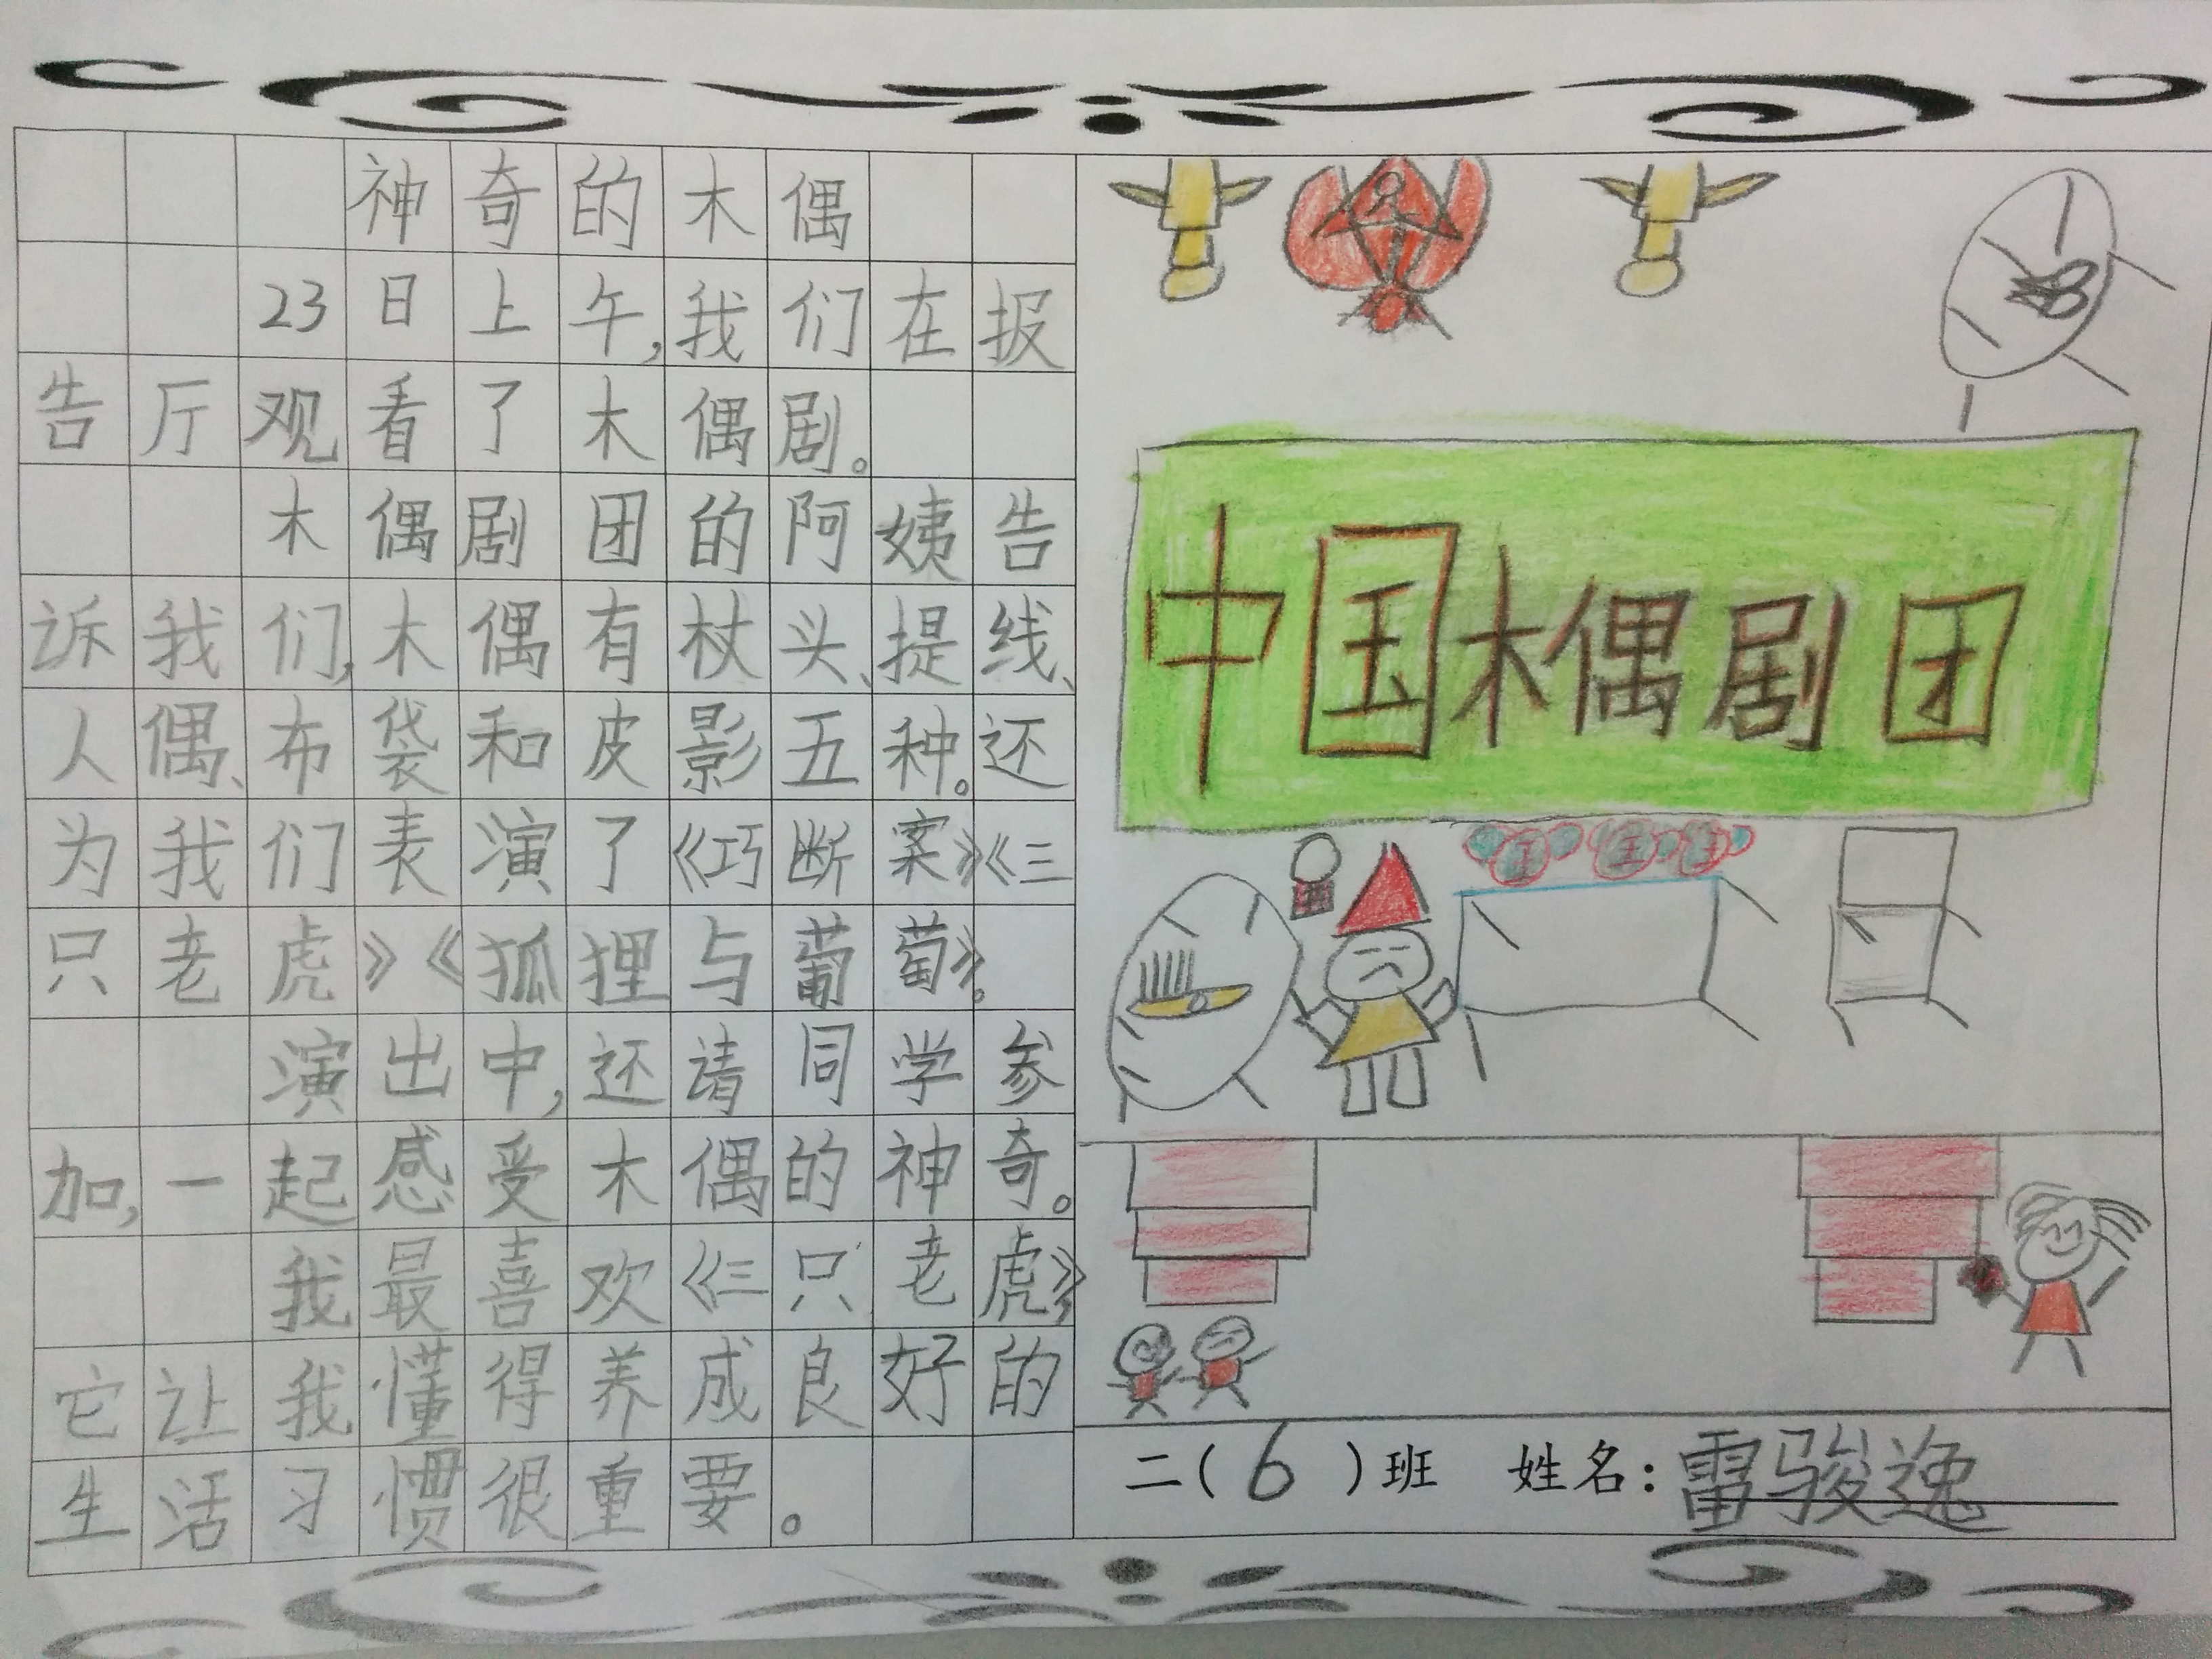 神奇的木偶
23日上午，我们在报
告厅观看了木偶剧。
木偶剧团的阿姨告
诉我们，木偶有杖头、提线、
人偶、布袋和皮影五种。还
为我们表演了《巧断案》《三
只老虎》《狐狸与葡萄》。
演出中，还请同学参
加，一起感受木偶的神奇。
我最喜欢《三只老虎》，
它让我懂得养成良好的
生活习惯很重要。
中国木偶剧团
王 王 王
二（6）班 姓名：雷骏逸